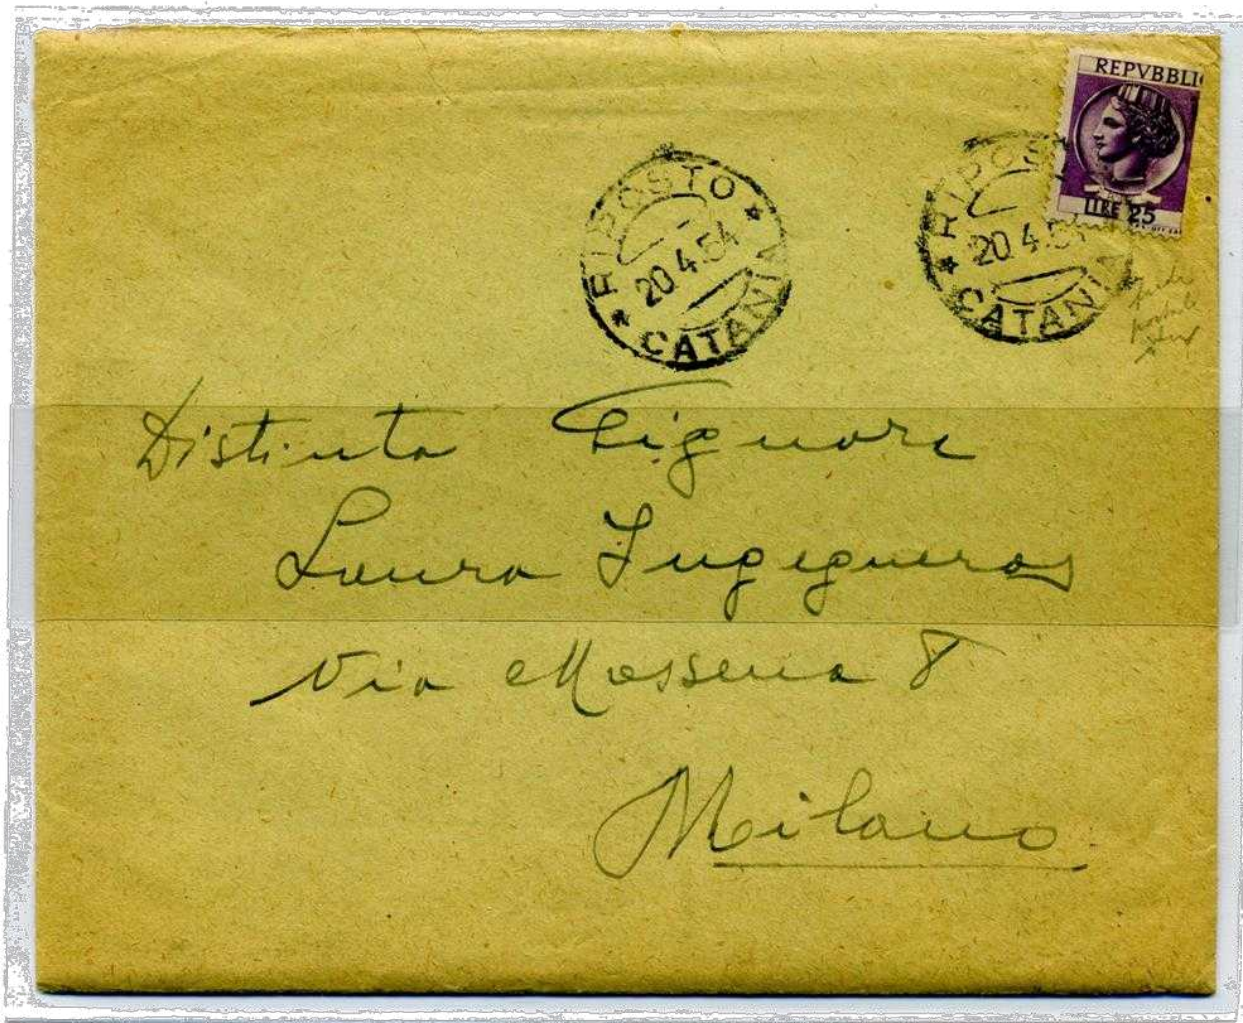 REPVBBLI
LIRE 25
RIPOSTO
20.4.54
CATANIA
RIPOS
20.4.54
CATANIA
Distinta Signora
Laura Ingegneros
Via Massena 8
Milano